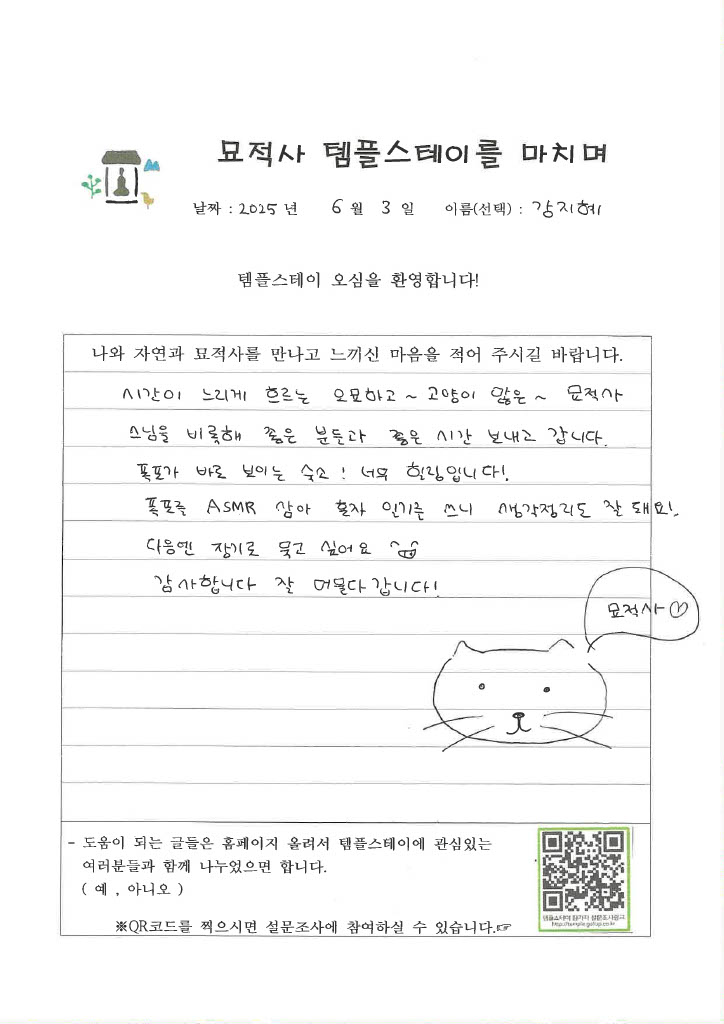 묘적사 템플스테이를 마치며
날짜 : 2025 년 6 월 3 일 이름(선택) : 강지혜
템플스테이 오심을 환영합니다!
나와 자연과 묘적사를 만나고 느끼신 마음을 적어 주시길 바랍니다.
시간이 느리게 흐르는 오묘하고~ 고양이 많은~ 묘적사
스님을 비롯해 좋은 분들과 좋은 시간 보내고 갑니다.
폭포가 바로 보이는 숙소! 너무 힐링입니다!
폭포를 ASMR 삼아 혼자 일기를 쓰니 생각정리도 잘 돼요!
다음엔 장기로 묵고 싶어요
감사합니다 잘 머물다 갑니다!
묘적사♡
- 도움이 되는 글들은 홈페이지 올려서 템플스테이에 관심있는
여러분들과 함께 나누었으면 합니다.
( 예 , 아니오 )
※QR코드를 찍으시면 설문조사에 참여하실 수 있습니다.☞
http://temple.gallup.co.kr